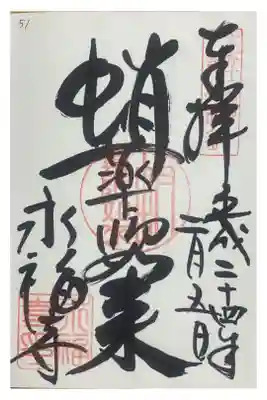 奉拝
平成二十四年
二月五日
蛸薬師如来
永福寺
51